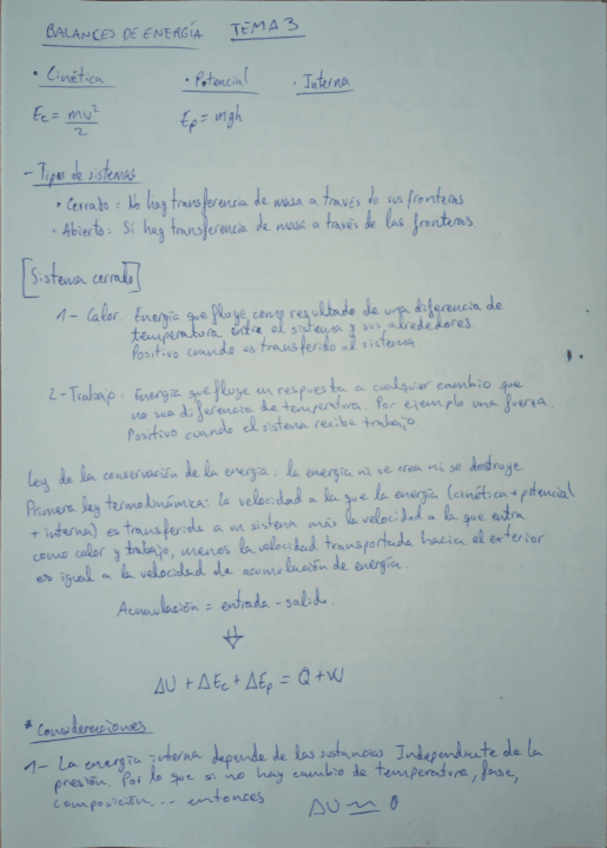 BALANCES DE ENERGÍA TEMA 3
• Cinética • Potencial • Interna
Ec = mv²/2 Ep = mgh
- Tipos de sistemas
• Cerrado: No hay transferencia de masa a través de sus fronteras
• Abierto: Si hay transferencia de masa a través de las fronteras.
[Sistema cerrado]
1- Calor. Energía que fluye como resultado de una diferencia de
temperatura entre el sistema y sus alrededores.
Positivo cuando es transferido al sistema.
2- Trabajo: Energía que fluye en respuesta a cualquier cambio que
no sea diferencia de temperatura. Por ejemplo una fuerza.
Positivo cuando el sistema recibe trabajo
Ley de la conservación de la energía: la energía ni se crea ni se destruye
Primera ley termodinámica: La velocidad a la que la energía (cinética + potencial
+ interna) es transferida a un sistema más la velocidad a la que entra
como calor y trabajo, menos la velocidad transportada hacia el exterior
es igual a la velocidad de acumulación de energía.
Acumulación = entrada - salida.
⇓
ΔU + ΔEc + ΔEp = Q + W
* Consideraciones
1- La energía interna depende de las sustancias. Independiente de la
presión. Por lo que si no hay cambio de temperatura, fase,
composición... entonces ΔU ≃ 0